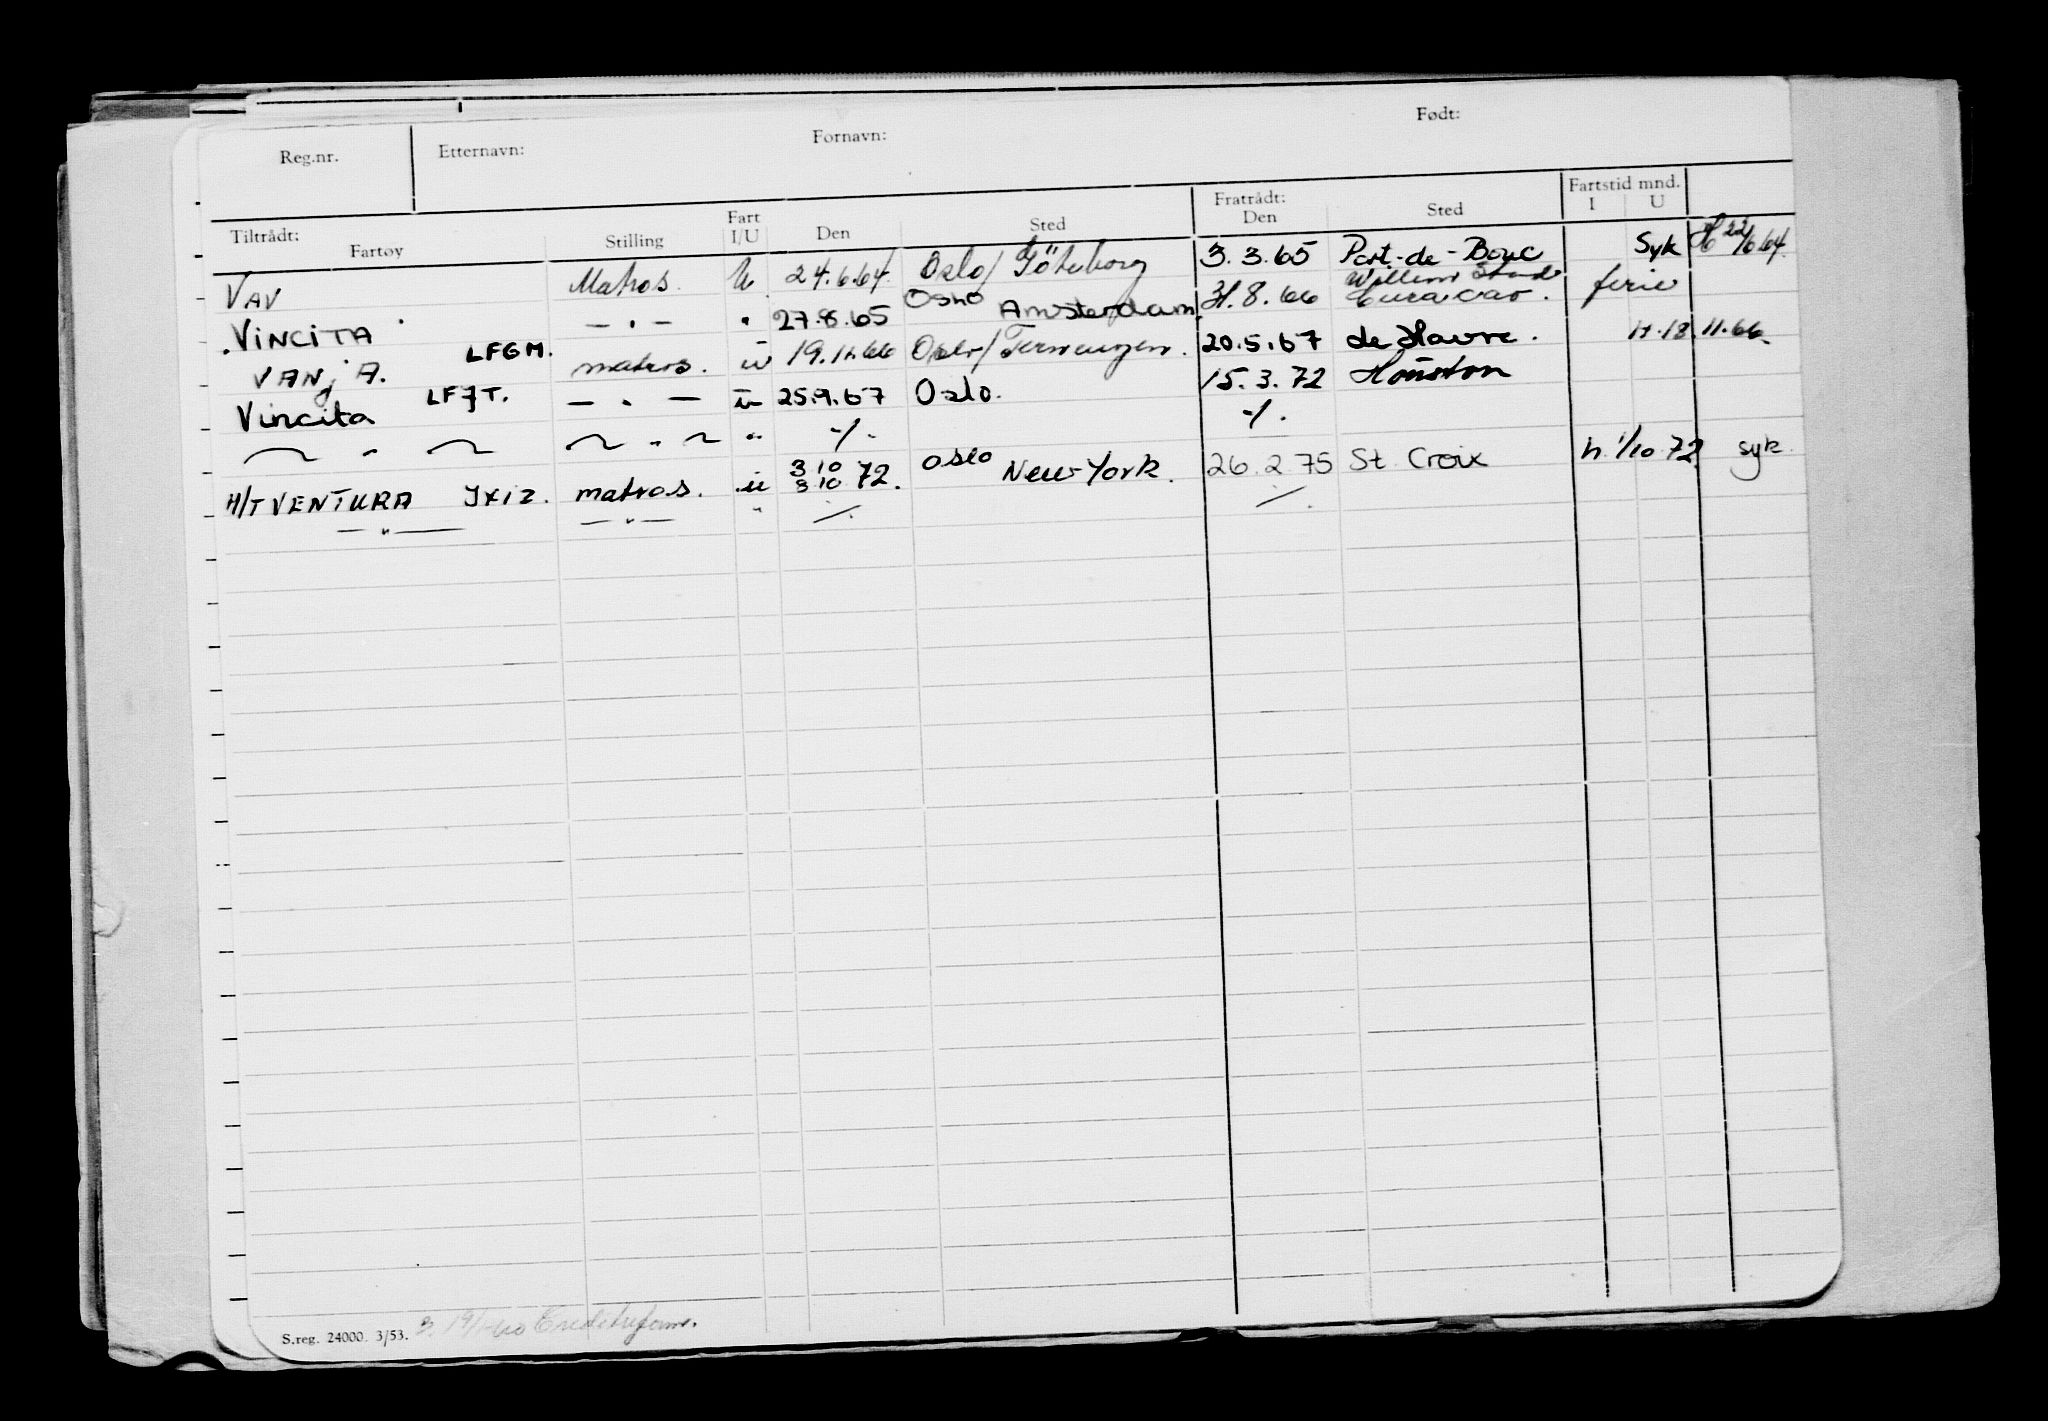 Reg.nr. Etternavn: Fornavn: Født:
Tiltrådt: Fartøy Stilling Fart I/U Den Sted Fratrådt: Den Sted Fartstid mnd. I U
VAV Matros. U. 24.6.64. Oslo/Göteborg 3.3.65 Port-de-Bouc Syk H 22/6.64.
VINCITA — " — " 27.8.65 Oslo Amsterdam. 31.8.66 Willemstad Curacao. ferie
VANJA. LFGM. matros. u 19.11.66 Oslo/ 20.5.67 Le Havre. H.18.11.66.
Vincita LFJT. — " — u 25.9.67 Oslo. 15.3.72 Houston
— " — — " — " -/. -/.
M/T VENTURA JXIZ. matros. u 3 10 3 10 72. Oslo New York. 26.2.75 St. Croix h. 1/10 72 syk.
— " — — " — " /. /.
S.reg. 24000. 3/53.